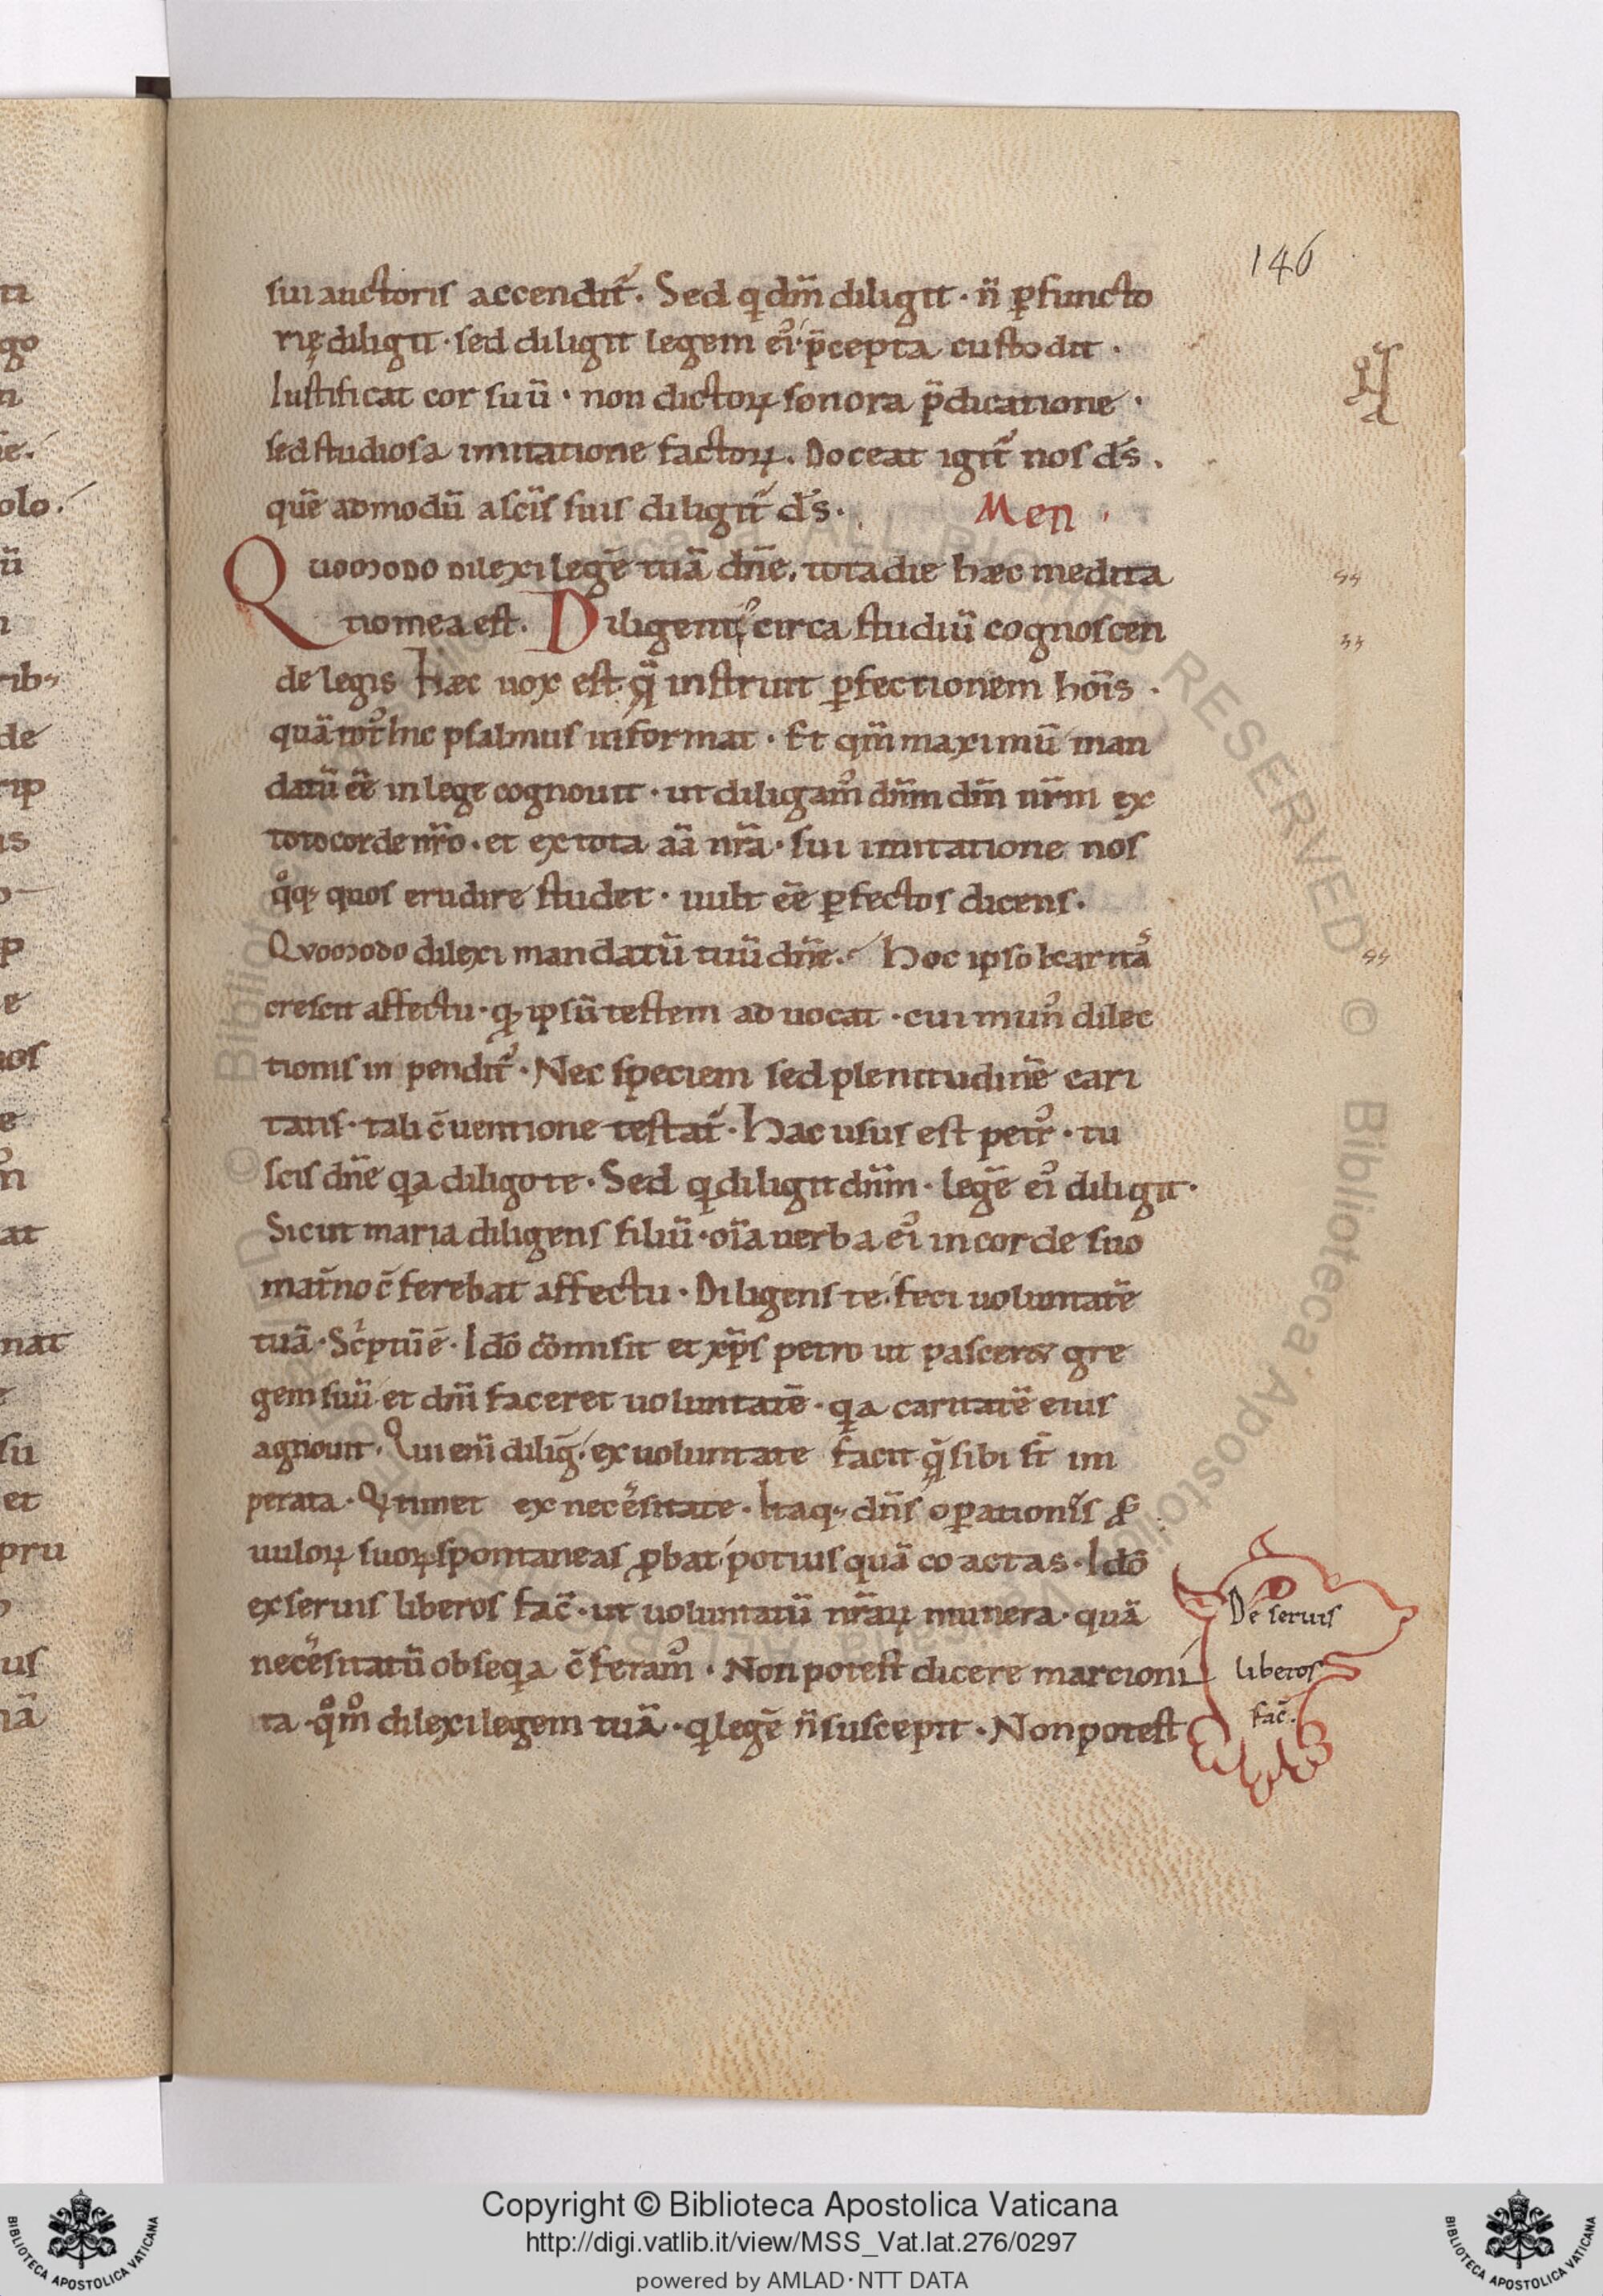 146
sui auctoris accendit᷑. Sed q dm̄ diligit · n̄ ꝑfuncto
rię diligit · sed diligit legem ei᷒ p̄cepta custodit ·
Iustificat cor suū · non dictoꝝ sonora p̄dicatione ·
sed studiosa imitatione factoꝝ. Doceat igit᷑ nos ds̄.
quē admodū a sc̄is suis diligit᷑ ds̄. Men
Quomodo dilexi legē tuā dn̄e, tota die hæc medita
tio mea est. Diligentis circa studiū cognoscen
de legis hæc uox est q̄ instruit ꝑfectionem hōis ·
quā hic psalmus informat · Et qm̄ maximū man
datū ēē in lege cognouit · ut diligam᷒ dn̄m dm̄ nr̄m ex
toto corde nr̄o · et ex tota aīa nr̄a · sui imitatione nos
qͦq; quos erudire studet · uult ēē ꝑfectos dicens.
Quomodo dilexi mandatū tuū dn̄e. Hoc ipso
crescit affectu · qđ ipsū testem aduocat · cui mun᷒ dilec
tionis inpendit᷑ · Nec speciem sed plenitudinē cari
tatis · tali c̄uentione testat᷑ · Hac usus est petr᷒ · tu
scis dn̄e qa diligo te · Sed q diligit dn̄m · legē ei᷒ diligit ·
Sicut maria diligens filiū · oīa uerba ei᷒ in corde suo
mat̄no c̄ferebat affectu · Diligens te feci uoluntatē
tuā · Sc̄ptū ē · Idō cōmisit et xp̄s petro ut pasceret gre
gem suū et dn̄i faceret uoluntatē · qa caritatē eius
agnouit. Qui eni diliḡ, ex uoluntate facit q̄ sibi st̄ im
perata · Qi timet ex necēsitate · Itaq; dn̄s oꝑationis
uuloꝝ suoꝝ spontaneas ꝓbat potius quā coactas · Idō
ex seruis liberos fac̄ · ut uoluntatū nr̄aꝝ munera · quā
necēsitatū obseqa c̄feram᷒ · Non potest dicere marcioni
ta · qͦmͦ dilexi legem tuā · q legē n̄ suscepit · Non potest
De seruis
liberos
fac̄.
Copyright © Biblioteca Apostolica Vaticana
http://digi.vatlib.it/view/MSS_Vat.lat.276/0297
powered by AMLAD·NTT DATA
BIBLIOTECA APOSTOLICA VATICANA
BIBLIOTECA APOSTOLICA VATICANA